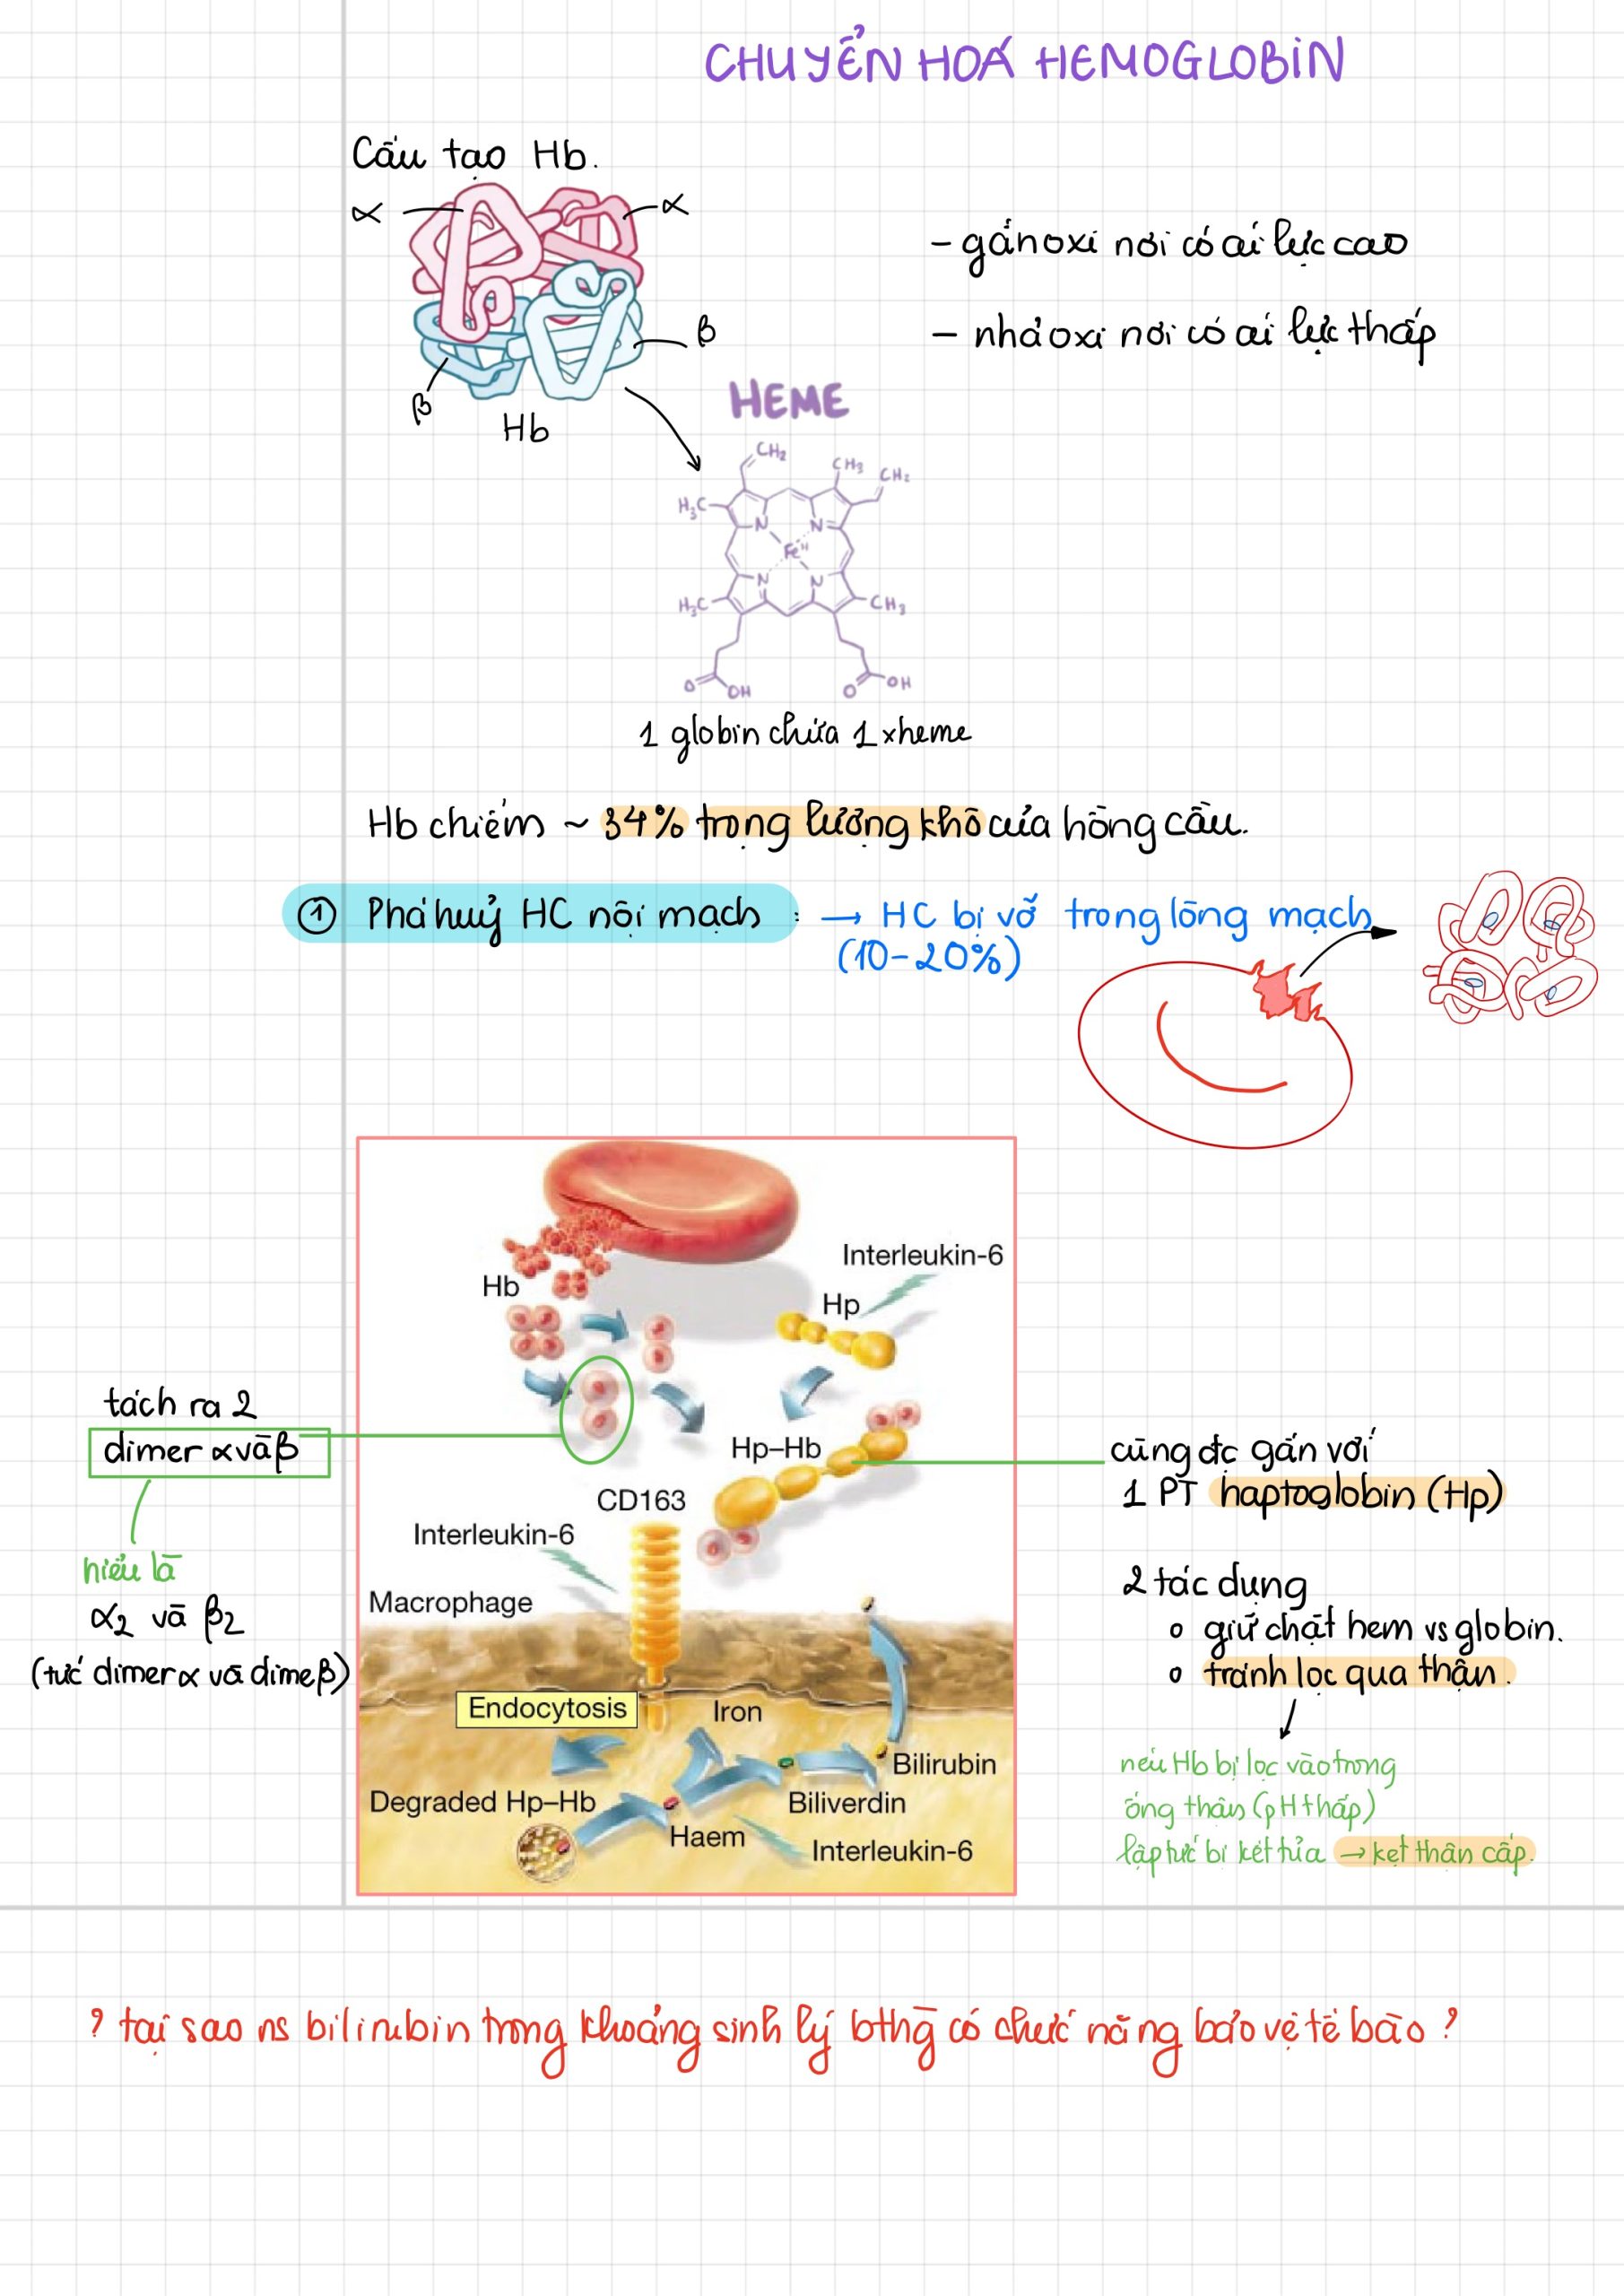 CHUYỂN HOÁ HEMOGLOBIN
Cấu tạo Hb.
α
α
β
β
Hb
- gắn oxi nơi có ái lực cao
- nhả oxi nơi có ái lực thấp
HEME
CH₂
CH₃
CH₂
H₃C
N
N
Fe
N
N
H₃C
CH₃
O
OH
O
OH
1 globin chứa 1 x heme
Hb chiếm ~ 34% trọng lượng khô của hồng cầu.
① Phá huỷ HC nội mạch : → HC bị vỡ trong lòng mạch
(10-20%)
Interleukin-6
Hb
Hp
tách ra 2
dimer α và β
hiểu là
α₂ và β₂
(tức dimer α và dime β)
Hp–Hb
CD163
Interleukin-6
Macrophage
Endocytosis
Iron
Bilirubin
Degraded Hp–Hb
Biliverdin
Haem
Interleukin-6
cùng đc gắn với
1 PT haptoglobin (Hp)
2 tác dụng
o giữ chặt hem vs globin.
o tránh lọc qua thận.
nếu Hb bị lọc vào trong
ống thận (pH thấp)
lập tức bị kết tủa → kẹt thận cấp.
? tại sao ns bilirubin trong khoảng sinh lý bthg có chức năng bảo vệ tế bào ?